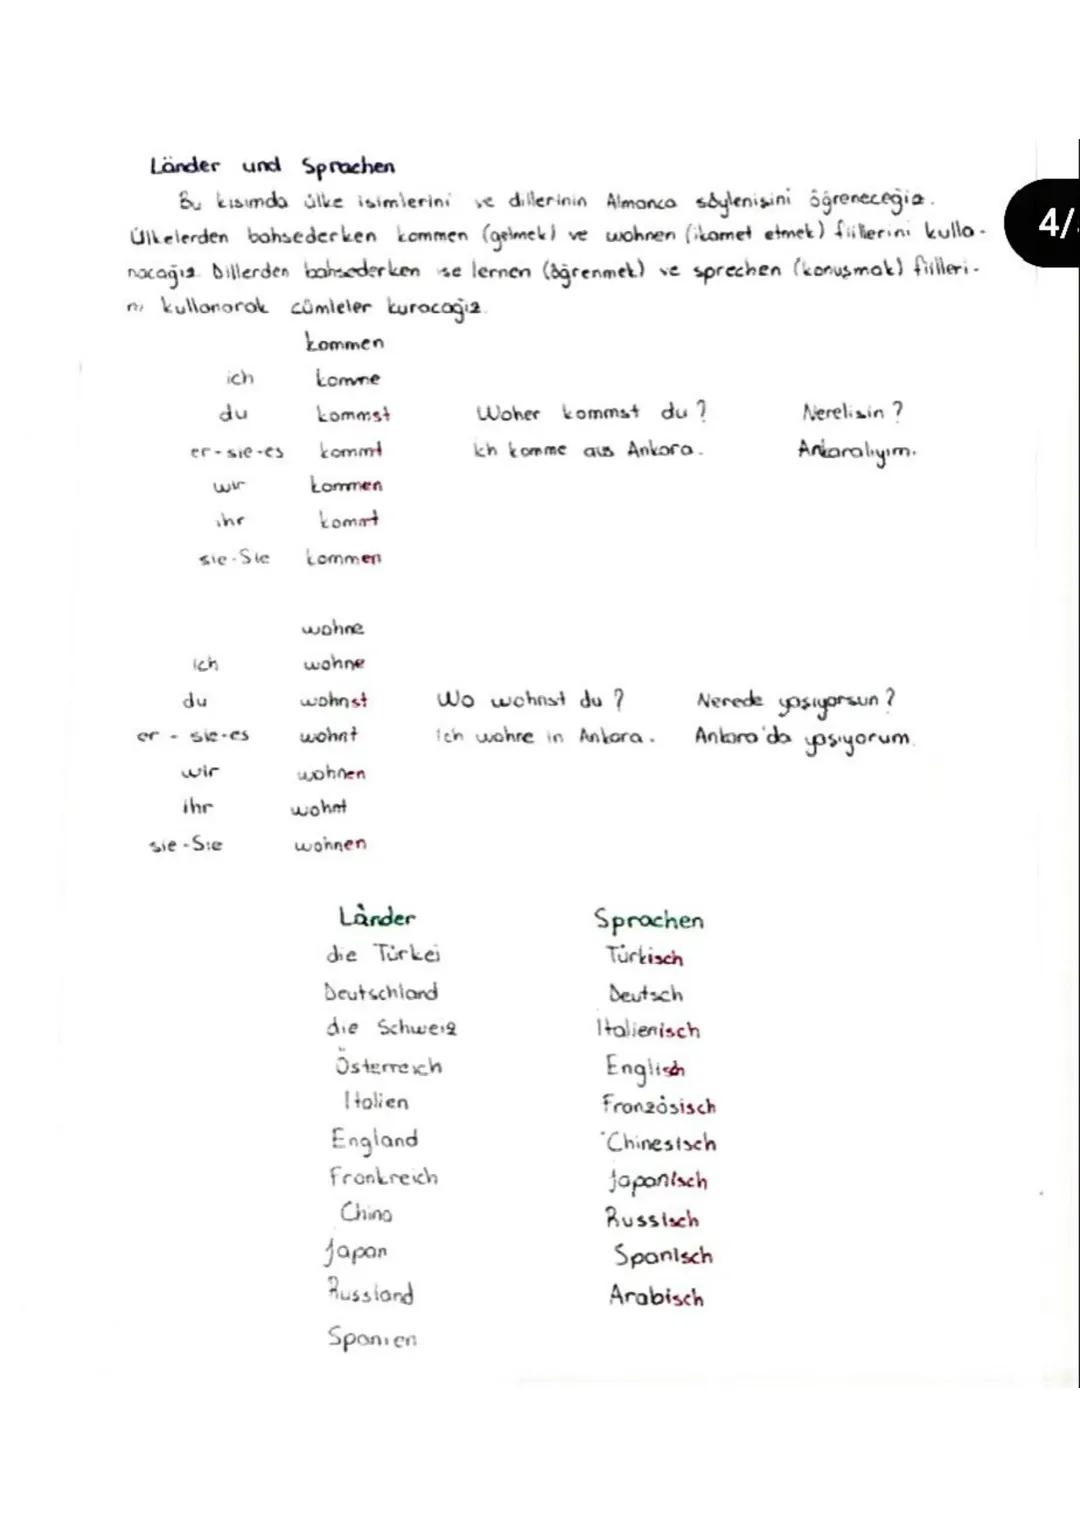 Länder und Sprachen
Bu kısımda ülke isimlerini ve dillerinin Almanca söylenişini öğreneceğiz.
Ülkelerden bahsederken kommen (gelmek) ve wohnen (ikamet etmek) fiillerini kulla-
nacağız. Dillerden bahsederken ise lernen (öğrenmek) ve sprechen (konuşmak) fiilleri-
ni kullanarak cümleler kuracağız.
4/
kommen
ich komme
du kommst Woher kommst du? Nerelisin?
er-sie-es kommt Ich komme aus Ankara. Ankaralıyım.
wir kommen
ihr kommt
sie-Sie kommen
wohne
ich wohne
du wohnst Wo wohnst du? Nerede yaşıyorsun?
er-sie-es wohnt Ich wohne in Ankara. Ankara'da yaşıyorum.
wir wohnen
ihr wohnt
sie-Sie wohnen
Länder Sprachen
die Türkei Türkisch
Deutschland Deutsch
die Schweiz Italienisch
Österreich Englisch
Italien Französisch
England Chinesisch
Frankreich Japanisch
China Russisch
Japan Spanisch
Russland Arabisch
Spanien